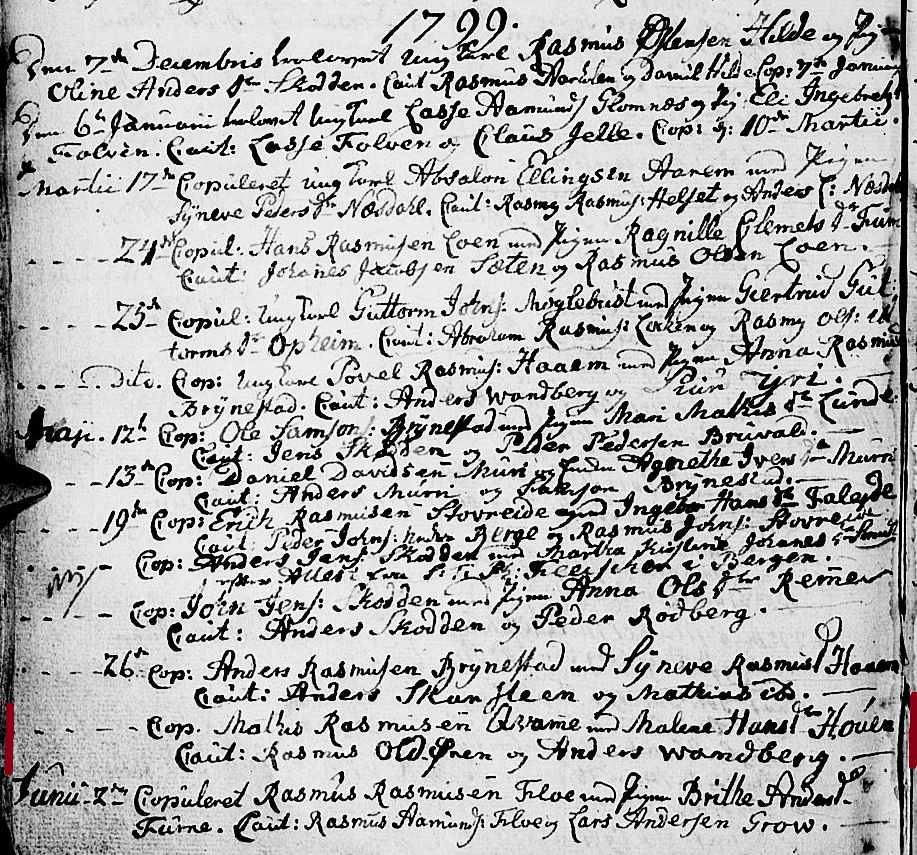 1799.
Den 7de Decembris trolovet Ungkarl Rasmus Hilde og Pig
Oline Anders dr Skodden. Caut Rasmus og Daniel Hilde Cop: 7de Januar
Den 6te Januarii trolovet Ungkarl Lasse Aamunds Glomnes og Pig: Eli Ingebrets
Folven. Caut: Lasse Folven og Claus Jelle. Cop: d: 10de Martii.
Martii 17de Copuleret Ungkarl Absalon Ellingsen Aarem med Pigen
Syneve Peders dr Næsdahl. Caut: Rasmus Rasmus: Helset og Anders C: Næsdahl
- - - - 24de Copul: Hans Rasmusen Loen med Pigen Ragnille Clemets dr
Caut: Johanes Jacobsen Sæten og Rasmus Olsen Loen.
- - - - 25de Copul: Ungkarl Guttorm Johns: Myglebust med Pigen Giertrud Gut
torms dr Opheim. Caut: Abraham Rasmus: og Rasmus Ols:
- - - - dito. Cop: Ungkarl Povel Rasmus: Haaem med Pigen Anna Rasmus
Brynestad. Caut: Anders Wandberg og
Maji. 12te Cop: Ole Samsons: Brynestad med Pigen Mari Mathis dr Lunde
Caut: Jens Skodden og Peder Pedersen Bruvold.
- - 13de Cop: Daniel Davidsen Muri og Agnethe Ivers dr Muri
Caut: Anders Muri og Samson Brynestad.
- - - 19de Cop: Erich Rasmusen Stovreide med Ingebor Hans dr Faleide
Caut Peder Johns: Berge og Rasmus Johns: Stovreide
- - - - Cop: Anders Jens: Skodden med Martha Kirstine Johanes dr
efter Fleischer i Bergen.
- - - - Cop: John Jens: Skodden med Pigen Anna Ols dr Remen
Caut: Anders Skodden og Peder Rødberg.
- - - 26de Cop: Anders Rasmusen Brynestad med Syneve Rasmus dr Haaem
Caut: Anders Skarsteen og Mathias ib.
- - - - Cop. Mathis Rasmusen Qvame med Malene Hans dr Houen
Caut: Rasmus Oldøren og Anders Wandberg.
Junii 2den Copuleret Rasmus Rasmusen Floe med Pigen Brithe Anders dr
Furne. Caut: Rasmus Aamunds: Floe og Lars Andersen Grow.